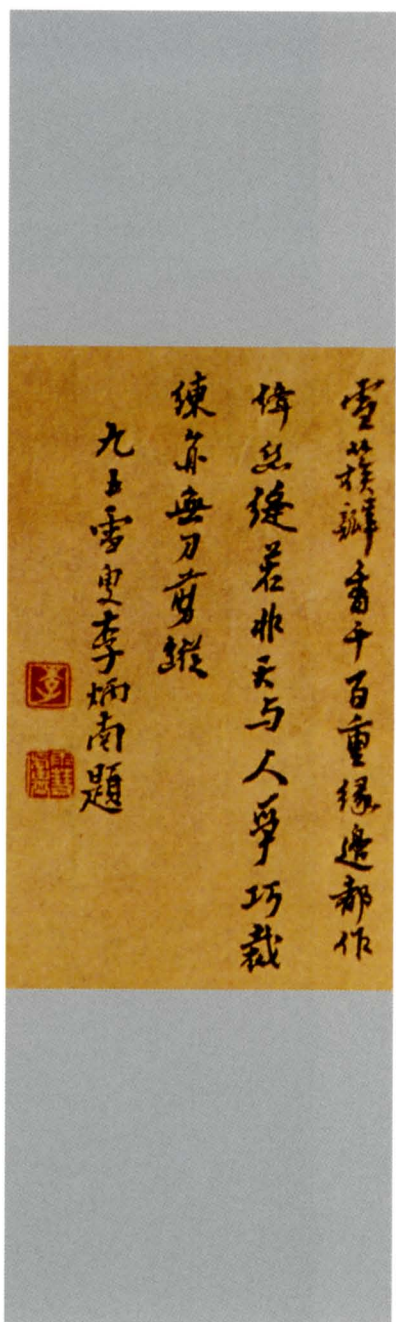 雪簇瓣香千百重緣邊都作
緯丝縫若非天与人爭巧裁
練亦無刀剪蹤
九五雪叟李炳南題
李